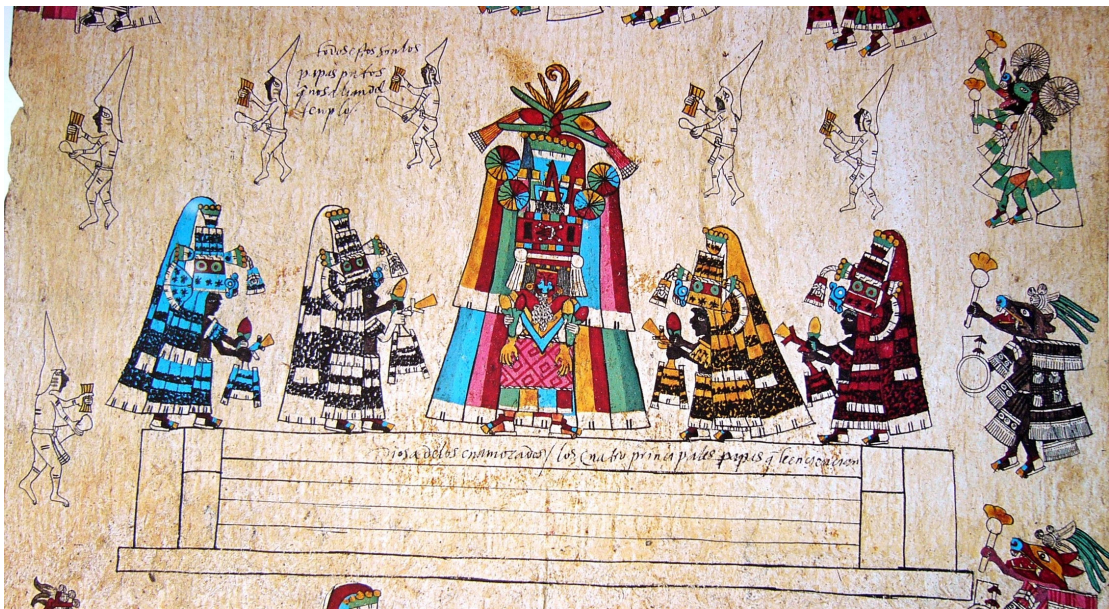 todos estos son los
papas
q no salian del
templo
Diosa de los enamorados / los cuatro principales papas q le